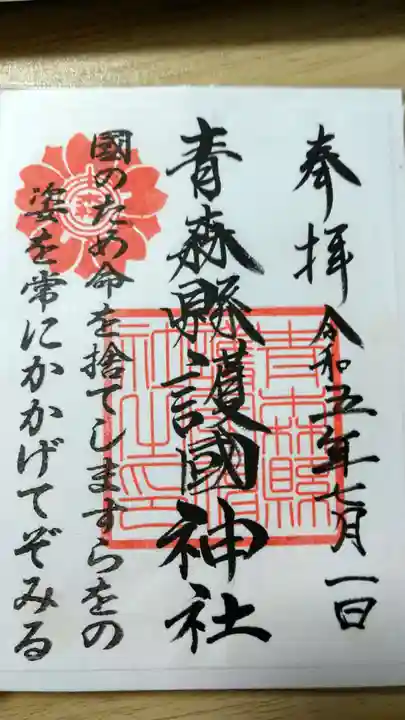 奉拝
令和五年七月一日
青森縣護國神社
國のため命を捨てしますらをの
姿を常にかかげてぞみる
青森縣護國神社之印